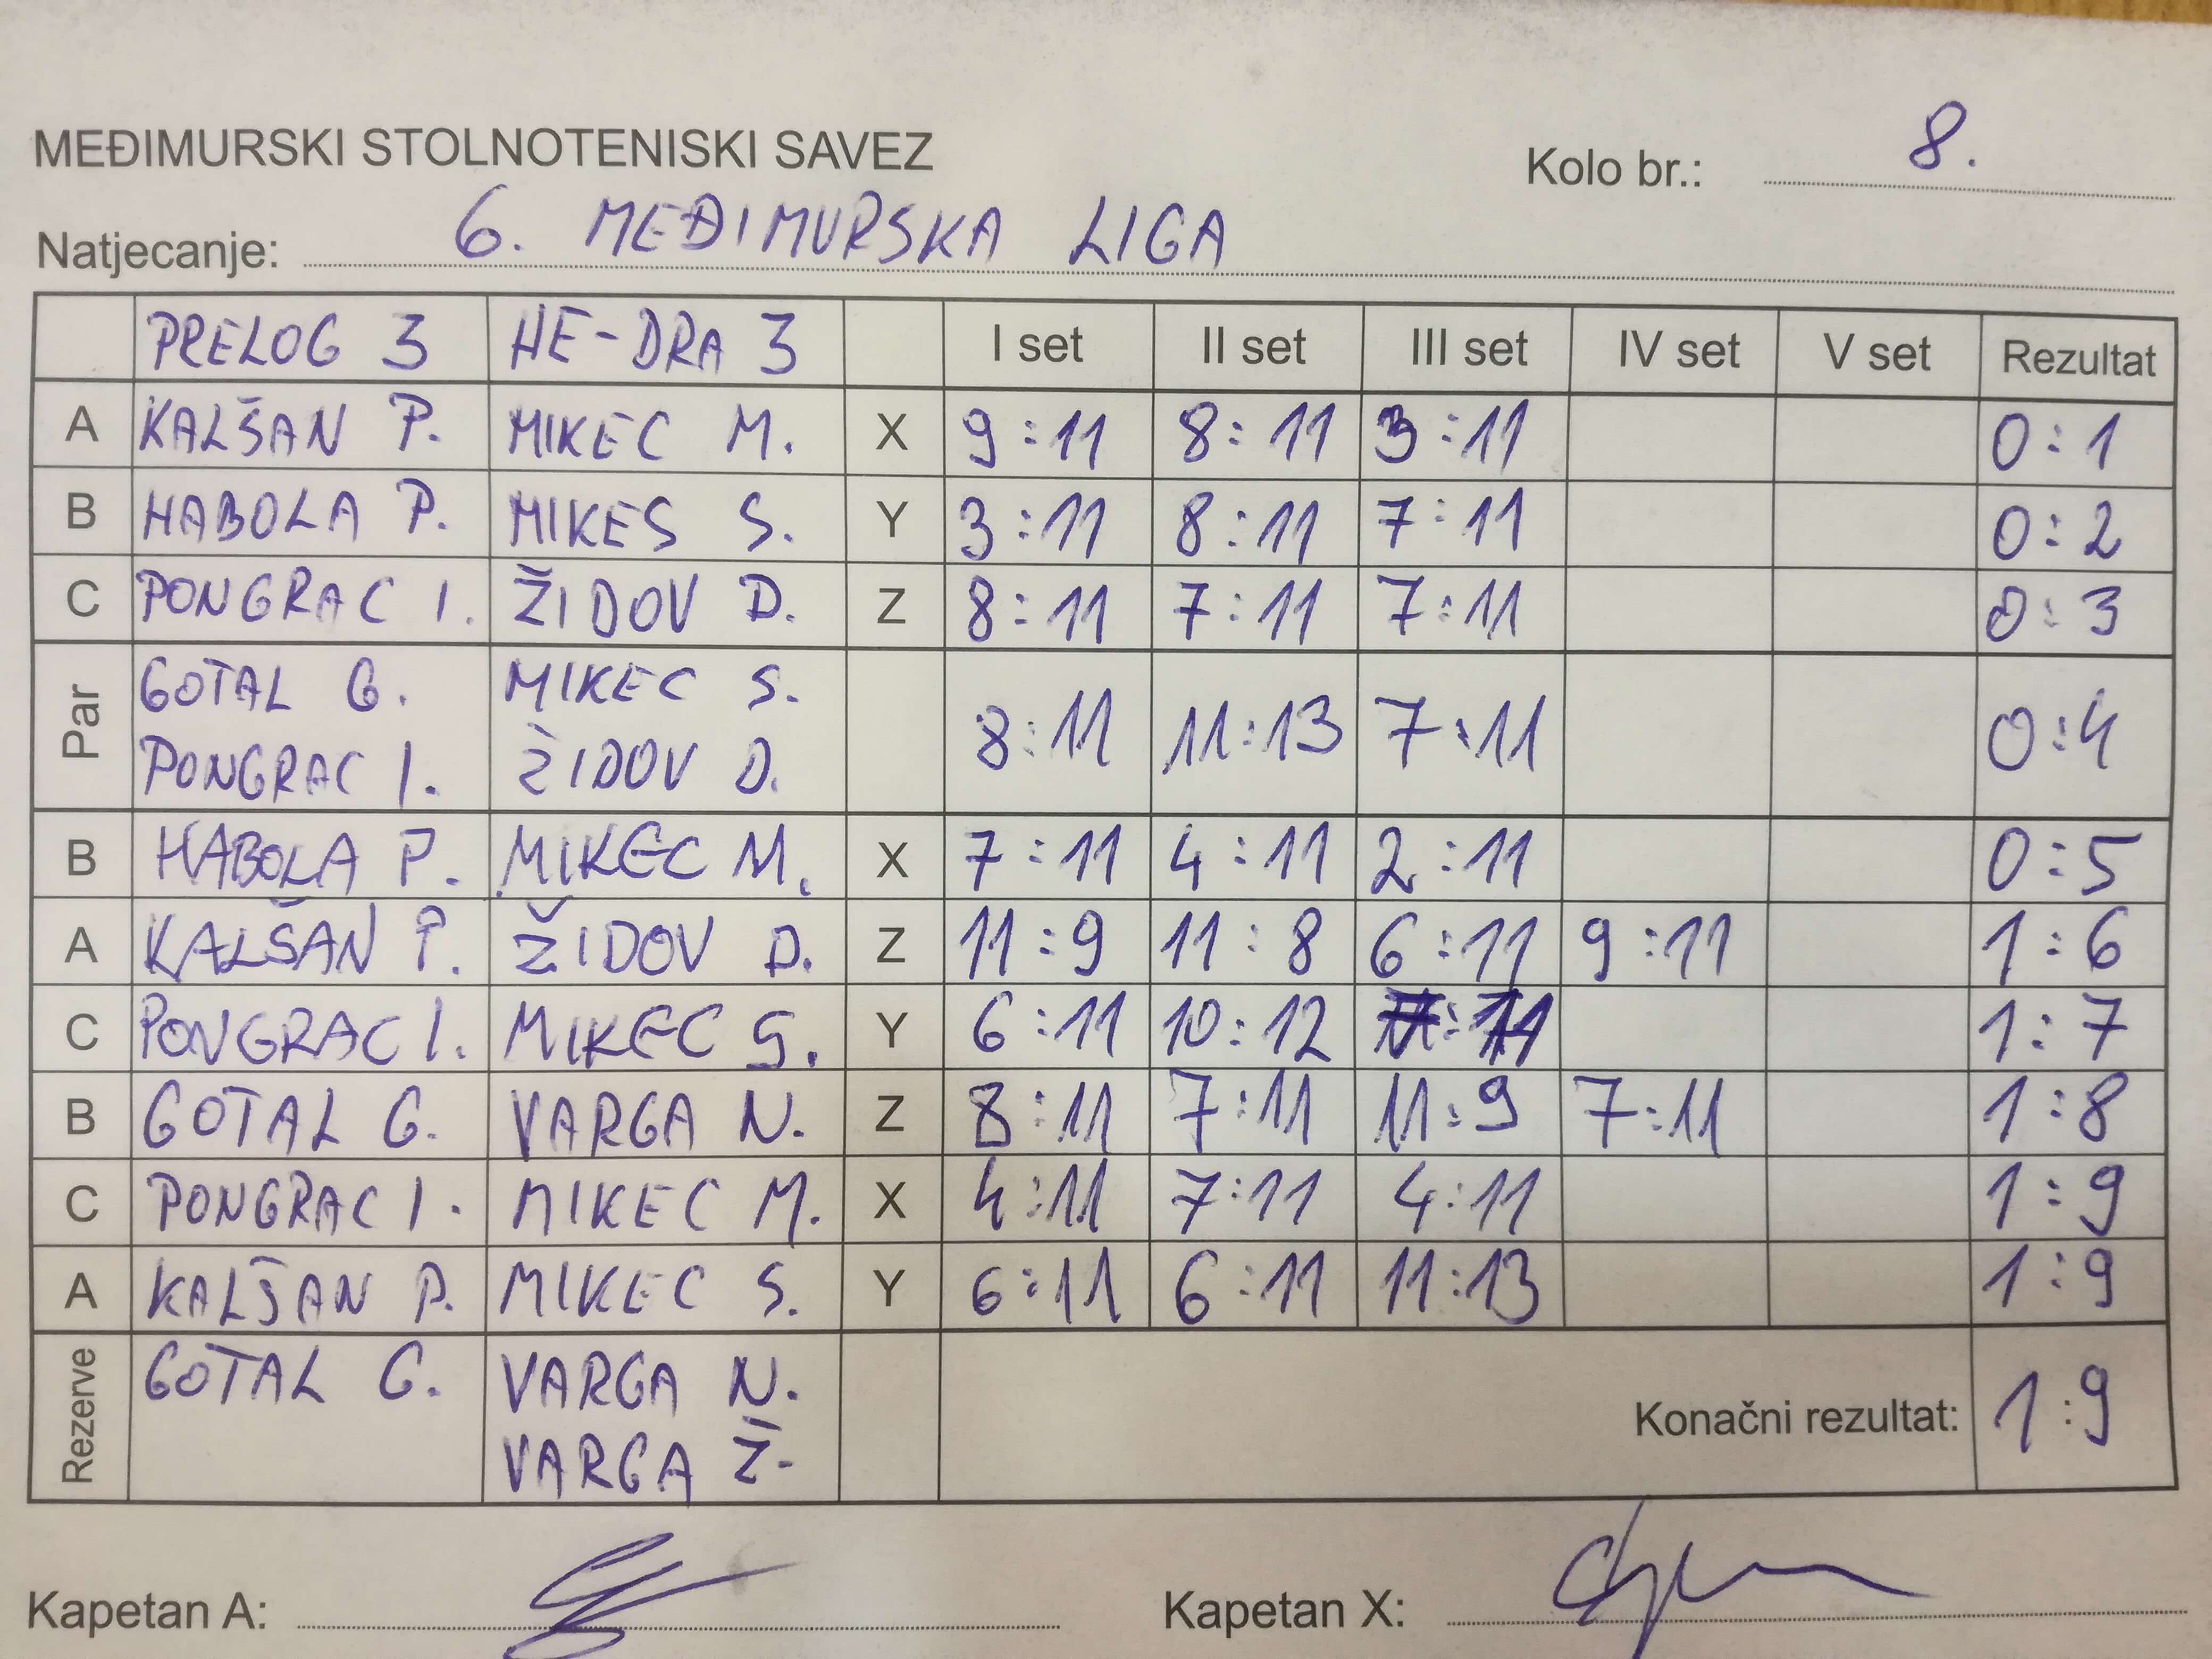 MEĐIMURSKI STOLNOTENISKI SAVEZ Kolo br.: 8.
Natjecanje: 6. MEĐIMURSKA LIGA
PRELOG 3 HE-DRA 3 I set II set III set IV set V set Rezultat
A KALŠAN P. MIKEC M. X 9:11 8:11 3:11 0:1
B HABOLA P. MIKES S. Y 3:11 8:11 7:11 0:2
C PONGRAC I. ŽIDOV D. Z 8:11 7:11 7:11 0:3
Par GOTAL G. MIKEC S. 8:11 11:13 7:11 0:4
PONGRAC I. ŽIDOV D.
B HABOLA P. MIKEC M. X 7:11 4:11 2:11 0:5
A KALŠAN P. ŽIDOV D. Z 11:9 11:8 6:11 9:11 1:6
C PONGRAC I. MIKEC S. Y 6:11 10:12 1:7
B GOTAL G. VARGA N. Z 8:11 7:11 11:9 7:11 1:8
C PONGRAC I. MIKEC M. X 4:11 7:11 4:11 1:9
A KALŠAN P. MIKEC S. Y 6:11 6:11 11:13 1:9
Rezerve GOTAL G. VARGA N. Konačni rezultat: 1:9
VARGA Ž.
Kapetan A: Kapetan X: